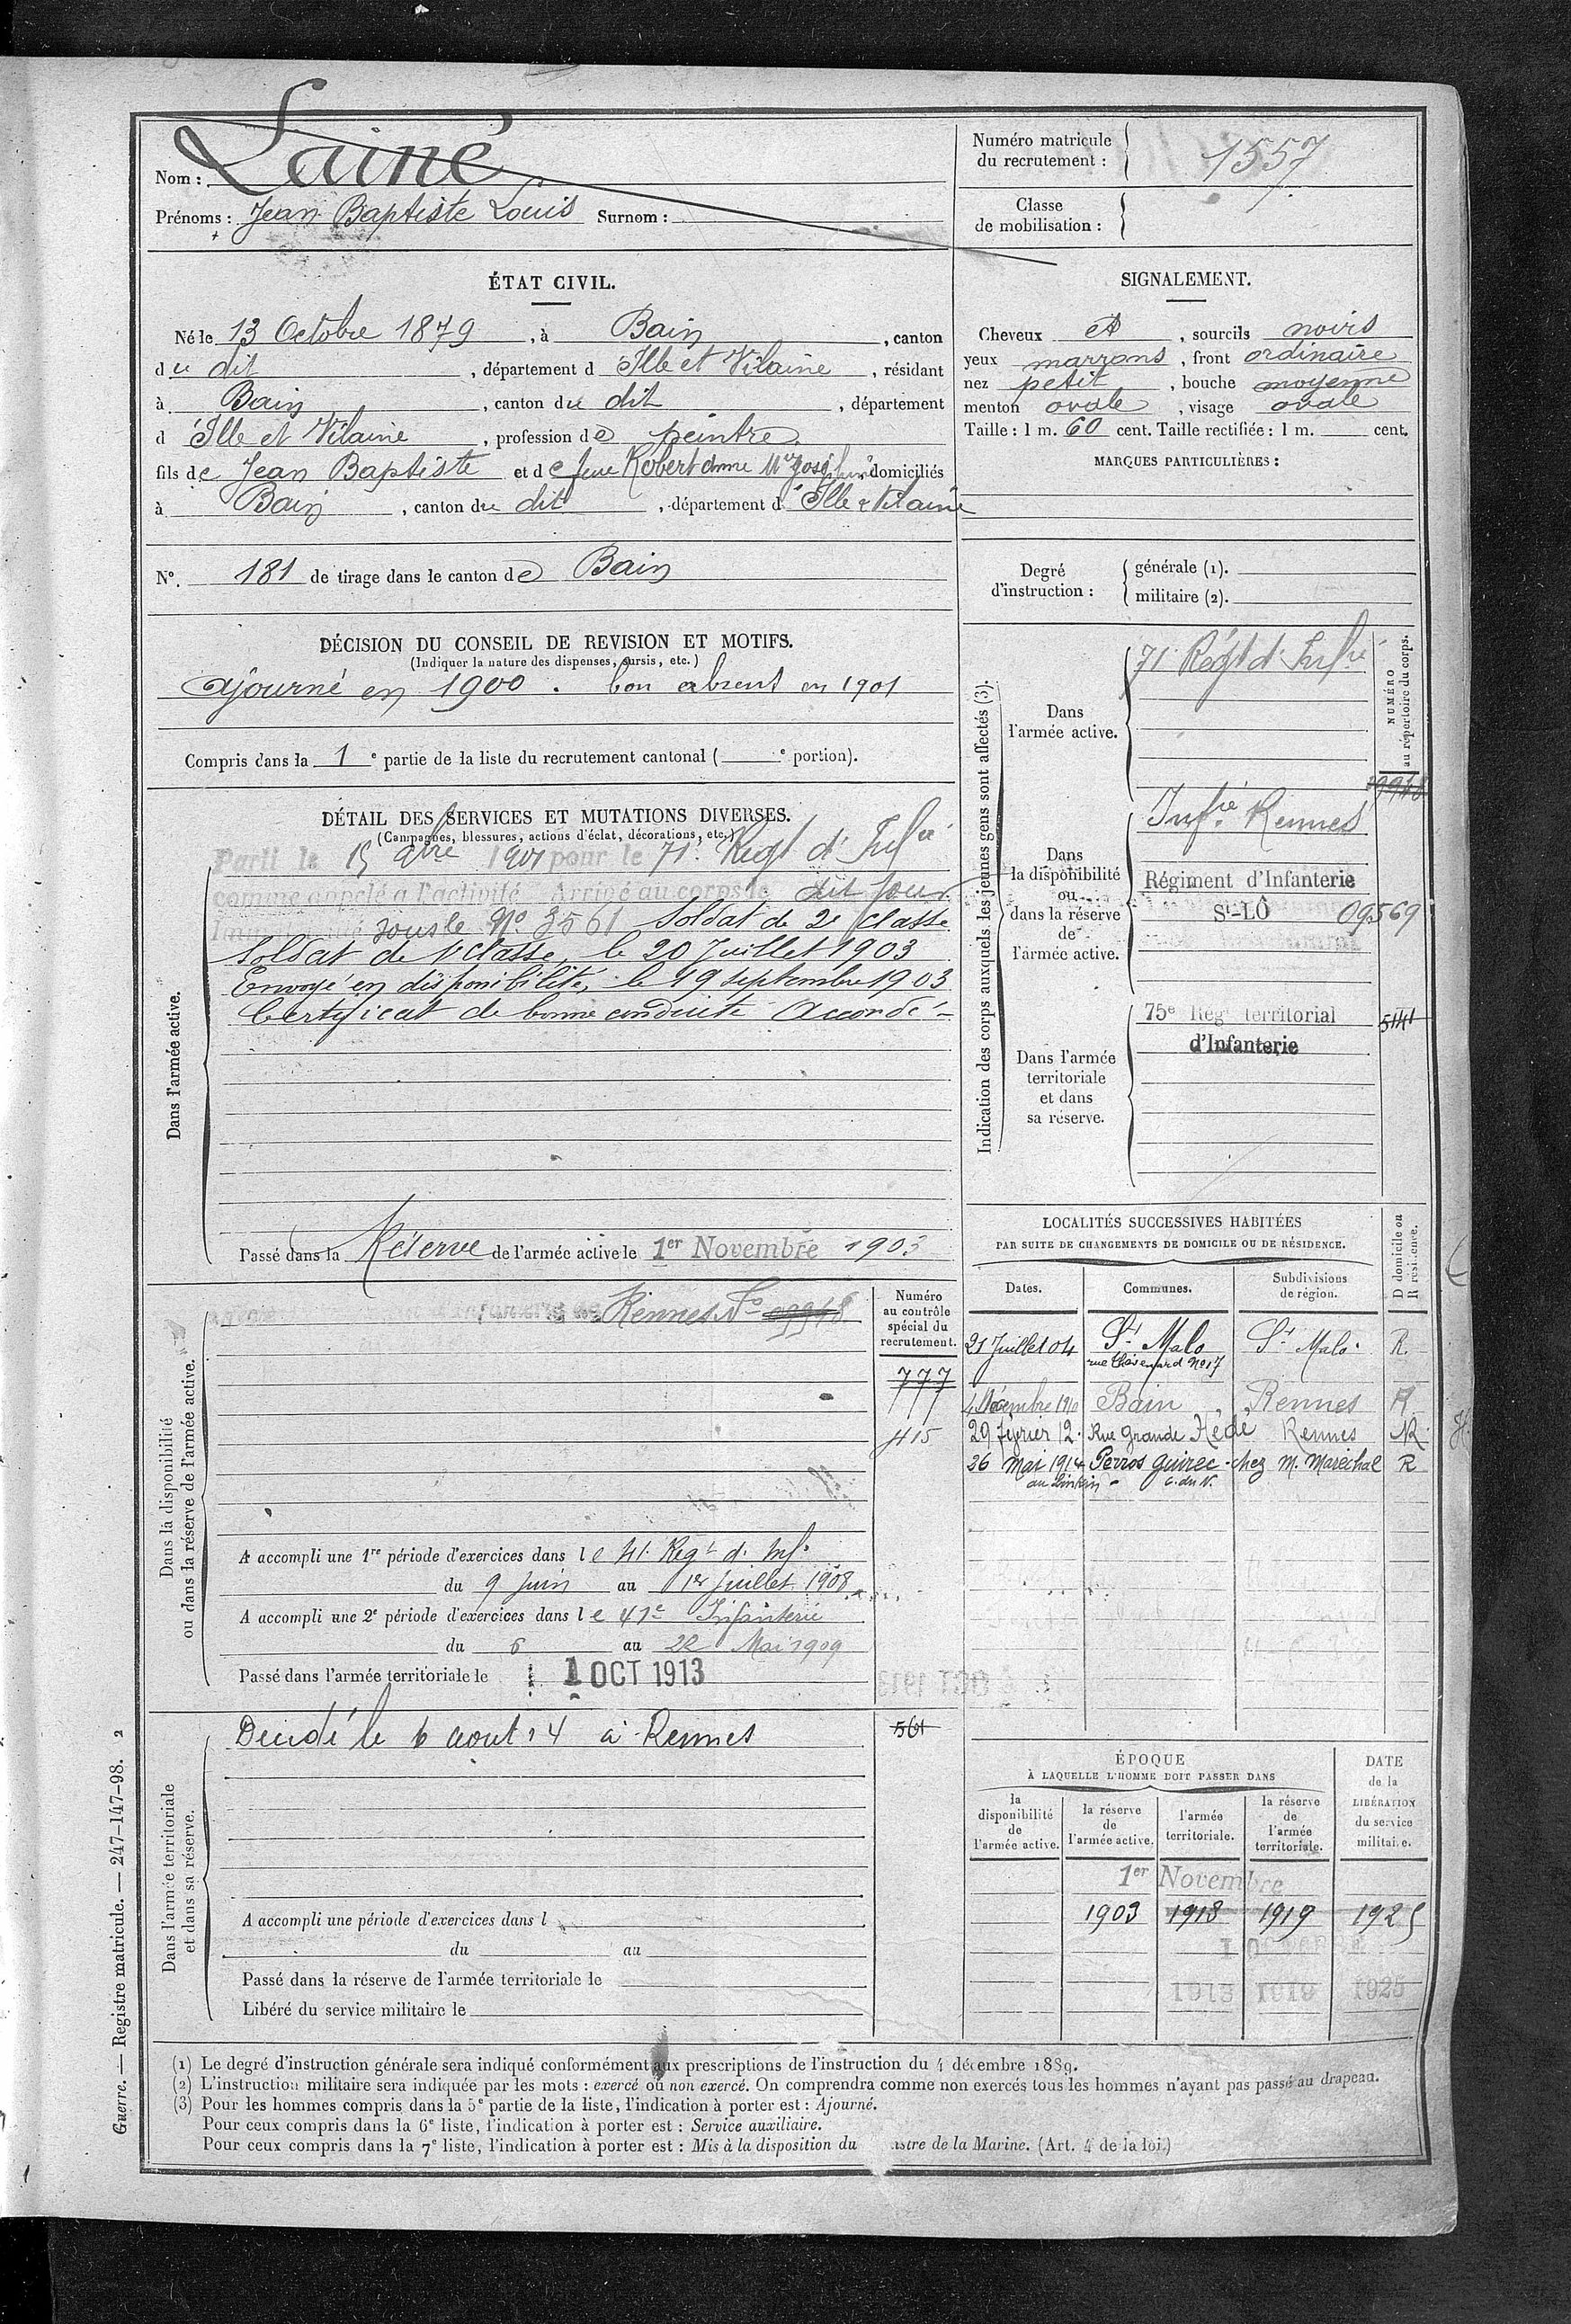 Nom : Lainé
Prénoms : Jean Baptiste Louis Surnom :
Numéro matricule du recrutement : 1557
Classe de mobilisation :
ÉTAT CIVIL.
Né le 13 Octobre 1879, à Bain, canton
du dit, département d Ille et Vilaine, résidant
à Bain, canton du dit, département
d Ille et Vilaine, profession de peintre
fils de Jean Baptiste et de feue Robert Anne Mie Josephine domiciliés
à Bain, canton du dit, département d'Ille & Vilaine
N°. 181 de tirage dans le canton de Bain
SIGNALEMENT.
Cheveux et, sourcils noirs
yeux marrons, front ordinaire
nez petit, bouche moyenne
menton ovale, visage ovale
Taille : 1 m. 60 cent. Taille rectifiée : 1 m. cent.
MARQUES PARTICULIÈRES :
Degré d'instruction :
générale (1).
militaire (2).
DÉCISION DU CONSEIL DE REVISION ET MOTIFS.
(Indiquer la nature des dispenses, sursis, etc.)
Ajourné en 1900. bon absent en 1901
Compris dans la 1e partie de la liste du recrutement cantonal ( e portion).
DÉTAIL DES SERVICES ET MUTATIONS DIVERSES.
(Campagnes, blessures, actions d'éclat, décorations, etc.)
Dans l'armée active.
Parti le 15 9bre 1901 pour le 71e Regt d'Infie
comme appelé à l'activité Arrivé au corps le dit jour
Immatriculé sous le No 3561 Soldat de 2e classe
Soldat de 1e classe, le 20 Juillet 1903
Envoyé en disponibilité, le 19 septembre 1903
Certificat de bonne conduite Accordé -
Passé dans la Réserve de l'armée active le 1er Novembre 1903
Indication des corps auxquels les jeunes gens sont affectés (3).
NUMÉRO au répertoire du corps.
Dans l'armée active.
71e Régt d'Infie
Dans la disponibilité ou dans la réserve de l'armée active.
09948
Infie Rennes
Régiment d'Infanterie
St-LÔ 09569
Dans l'armée territoriale et dans sa réserve.
75e Régt territorial 5141
d'Infanterie
Dans la disponibilité ou dans la réserve de l'armée active.
Rennes No 09948
Numéro au contrôle spécial du recrutement.
777
415
A accompli une 1re période d'exercices dans le 41e Regt d'Infie
du 9 Juin au 1er Juillet 1908
A accompli une 2e période d'exercices dans le 41e Infanterie
du 6 au 22 Mai 1909
Passé dans l'armée territoriale le 1 OCT 1913
LOCALITÉS SUCCESSIVES HABITÉES
PAR SUITE DE CHANGEMENTS DE DOMICILE OU DE RÉSIDENCE.
Dates. Communes. Subdivisions de région. D domicile ou R résidence.
21 Juillet 04 St Malo St Malo. R.
No 17
4 Décembre 1910 Bain Rennes R
29 février 12. Rue Grande Hédé Rennes R
26 Mai 1914 Perros Guirec chez M. Maréchal R
C. du N.
Dans l'armée territoriale et dans sa réserve.
Décidé le 6 aout 14 à Rennes
561
A accompli une période d'exercices dans l
du au
Passé dans la réserve de l'armée territoriale le
Libéré du service militaire le
ÉPOQUE
À LAQUELLE L'HOMME DOIT PASSER DANS
la disponibilité de l'armée active.
la réserve de l'armée active.
l'armée territoriale.
la réserve de l'armée territoriale.
DATE de la LIBÉRATION du service militaire.
1er Novembre
1903 1913 1919 1925
1913 1919 1925
(1) Le degré d'instruction générale sera indiqué conformément aux prescriptions de l'instruction du 4 décembre 1889.
(2) L'instruction militaire sera indiquée par les mots : exercé ou non exercé. On comprendra comme non exercés tous les hommes n'ayant pas passé au drapeau.
(3) Pour les hommes compris dans la 5e partie de la liste, l'indication à porter est : Ajourné.
Pour ceux compris dans la 6e liste, l'indication à porter est : Service auxiliaire.
Pour ceux compris dans la 7e liste, l'indication à porter est : Mis à la disposition du istre de la Marine. (Art. 4 de la loi.)
Guerre. — Registre matricule. — 247-147-98. 2